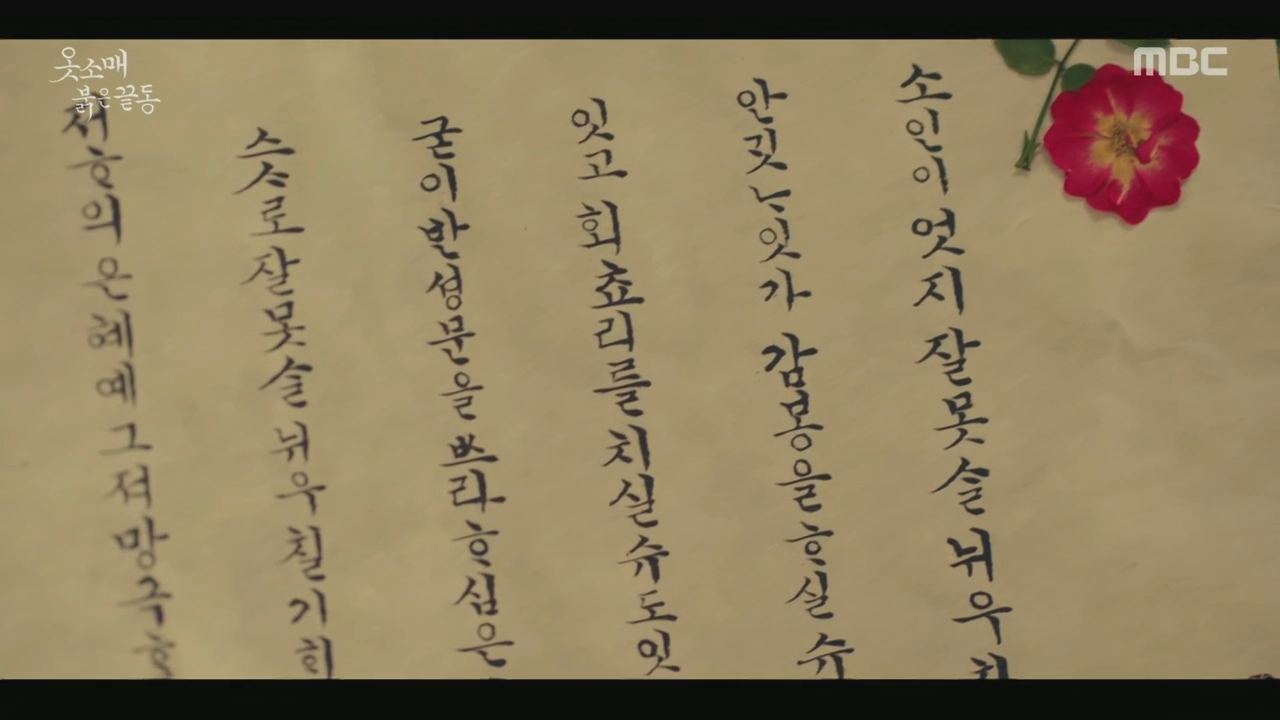 옷소매 붉은 끝동
MBC
소인이 엇지 잘못슬 뉘우치
안깃ᄂᆞ잇가 감봉을 ᄒᆞ실 슈
잇고 회쵸리를 치실 슈도 잇
굳이 반셩문을 ᄡᅳ라 ᄒᆞ심은
스ᄉᆞ로 잘못슬 뉘우칠 기회
져ᄒᆞ의 은혜예 그져 망극ᄒᆞ